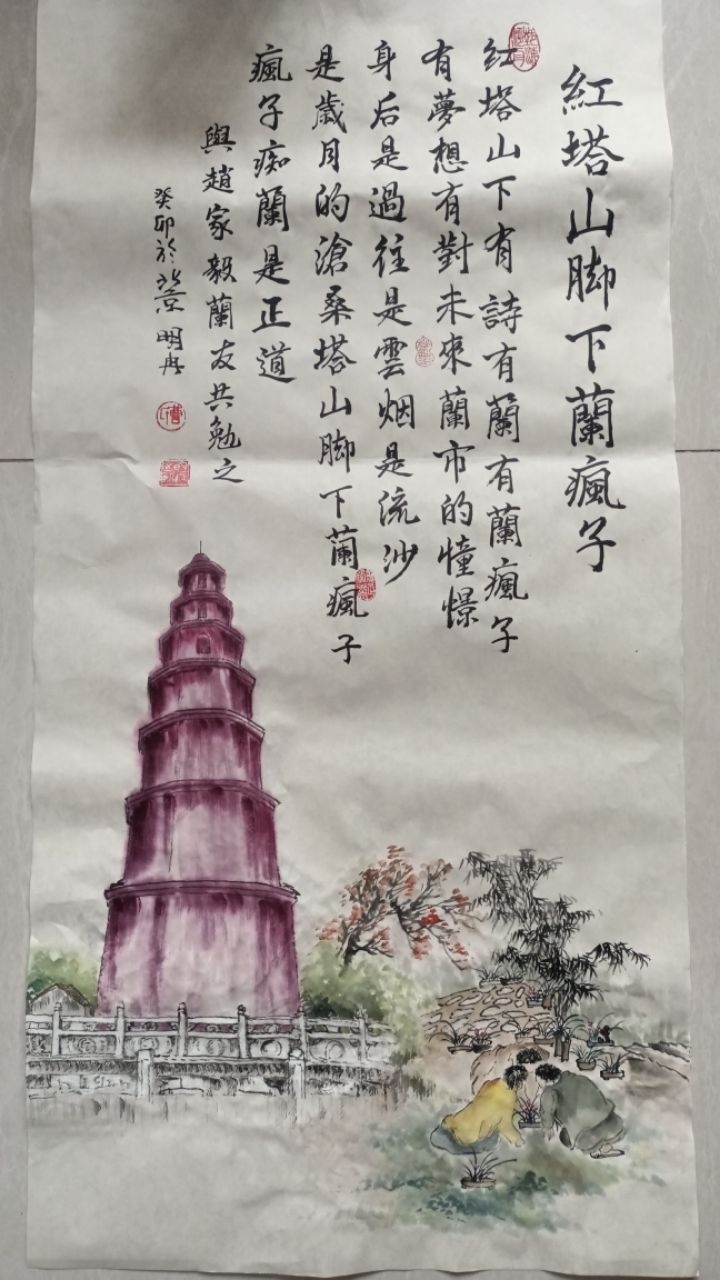 紅塔山脚下蘭瘋子
紅塔山下有詩有蘭有蘭瘋子
有夢想有對未來蘭市的憧憬
身后是過往是雲烟是流沙
是歲月的滄桑塔山脚下蘭瘋子
瘋子痴蘭是正道
與趙家毅蘭友共勉之
癸卯於景明冉